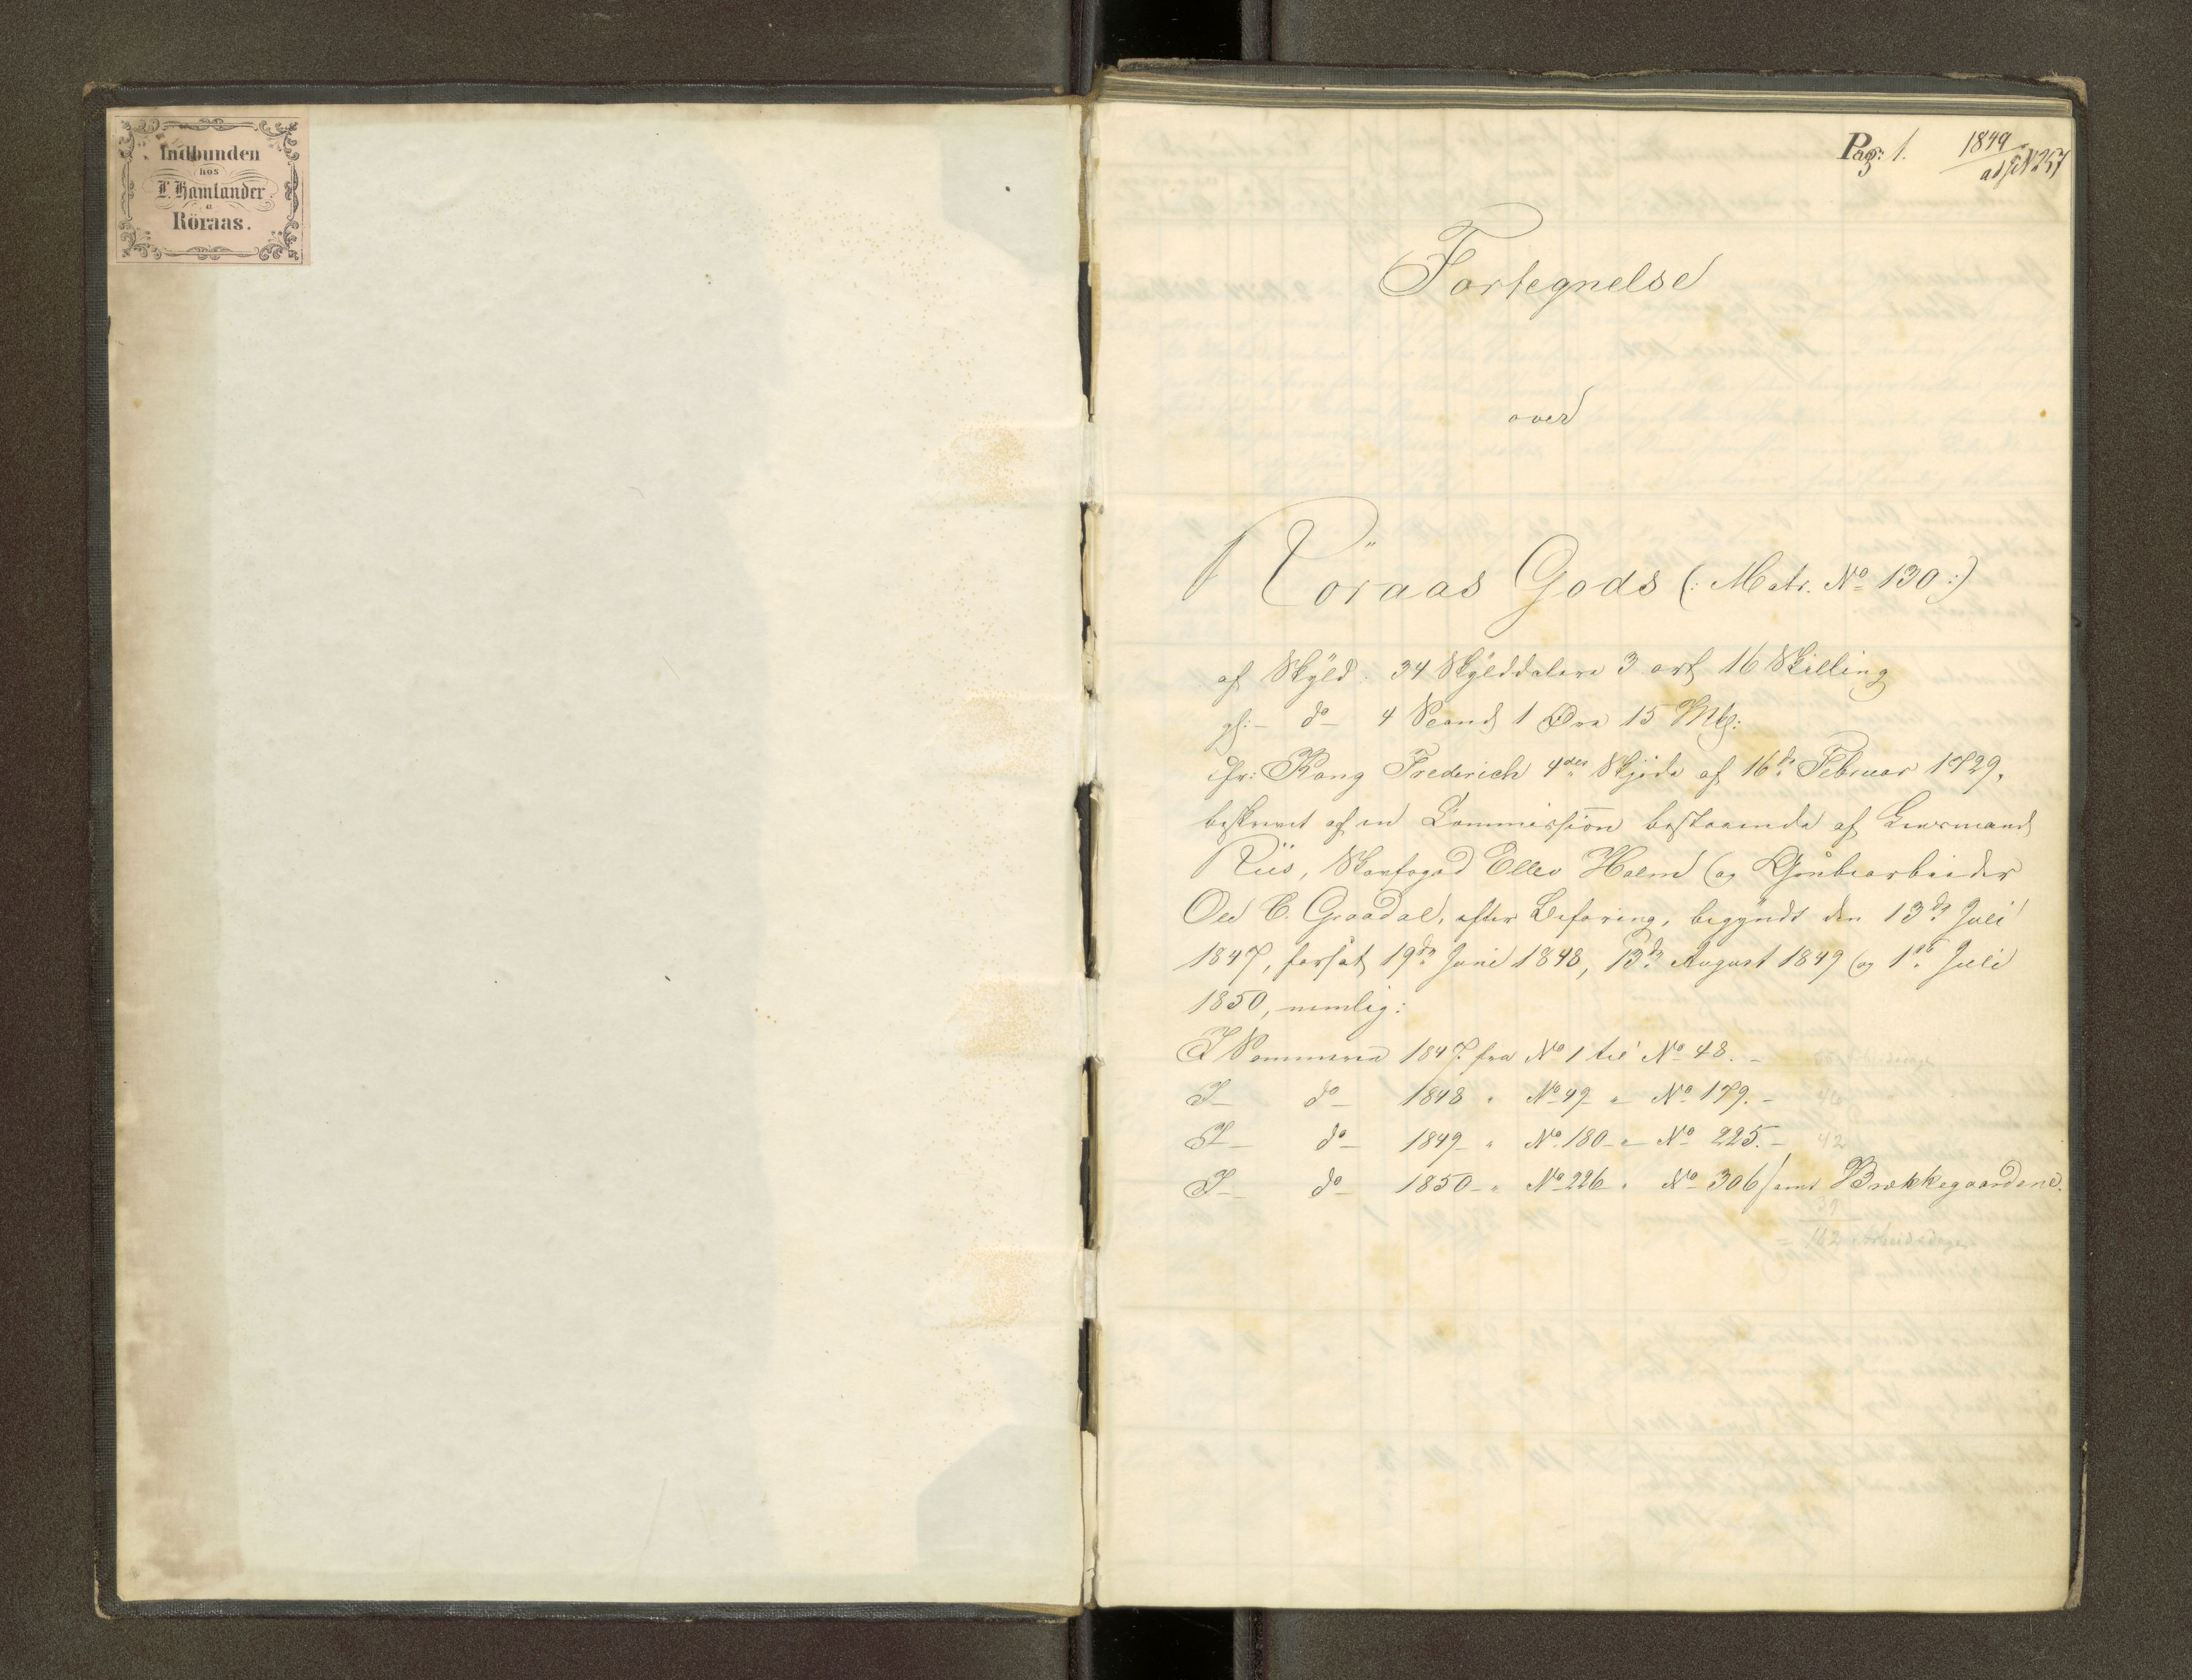 Indbunden
hos
L. Hamlander
a
Röraas.
Pag: 1.
1849
ad J. N 257
Fortegnelse
over
Röraas Gods (: Matr. No 130 :)
af Skyld. 34 Skylddalere 3 ort 16 Skilling
gl: - do - 4 Spand 1 Øre 15 Mk:
cfr: Kong Frederich 4des Skjöde af 16de Februar 1729,
beskrevet af en Commission bestaaende af Lensmand
Riis, Skovfogd Ellev Holm og Grubearbeider
Ole C. Graadal, efter Befaring, begyndt den 13de Juli
1847, forsat 19de Juni 1848, 13de August 1849 og 1ste Juli
1850, nemlig:
I Sommeren 1847 fra No 1 til No 48. -
I - do - 1848 " No 49 " No 179. - 46
I - do - 1849 " No 180 - " No 225. - 42
I - do - 1850 - " No 226 " No 306 samt Brækkegaardene.
39
= 162 Arbeidsdage